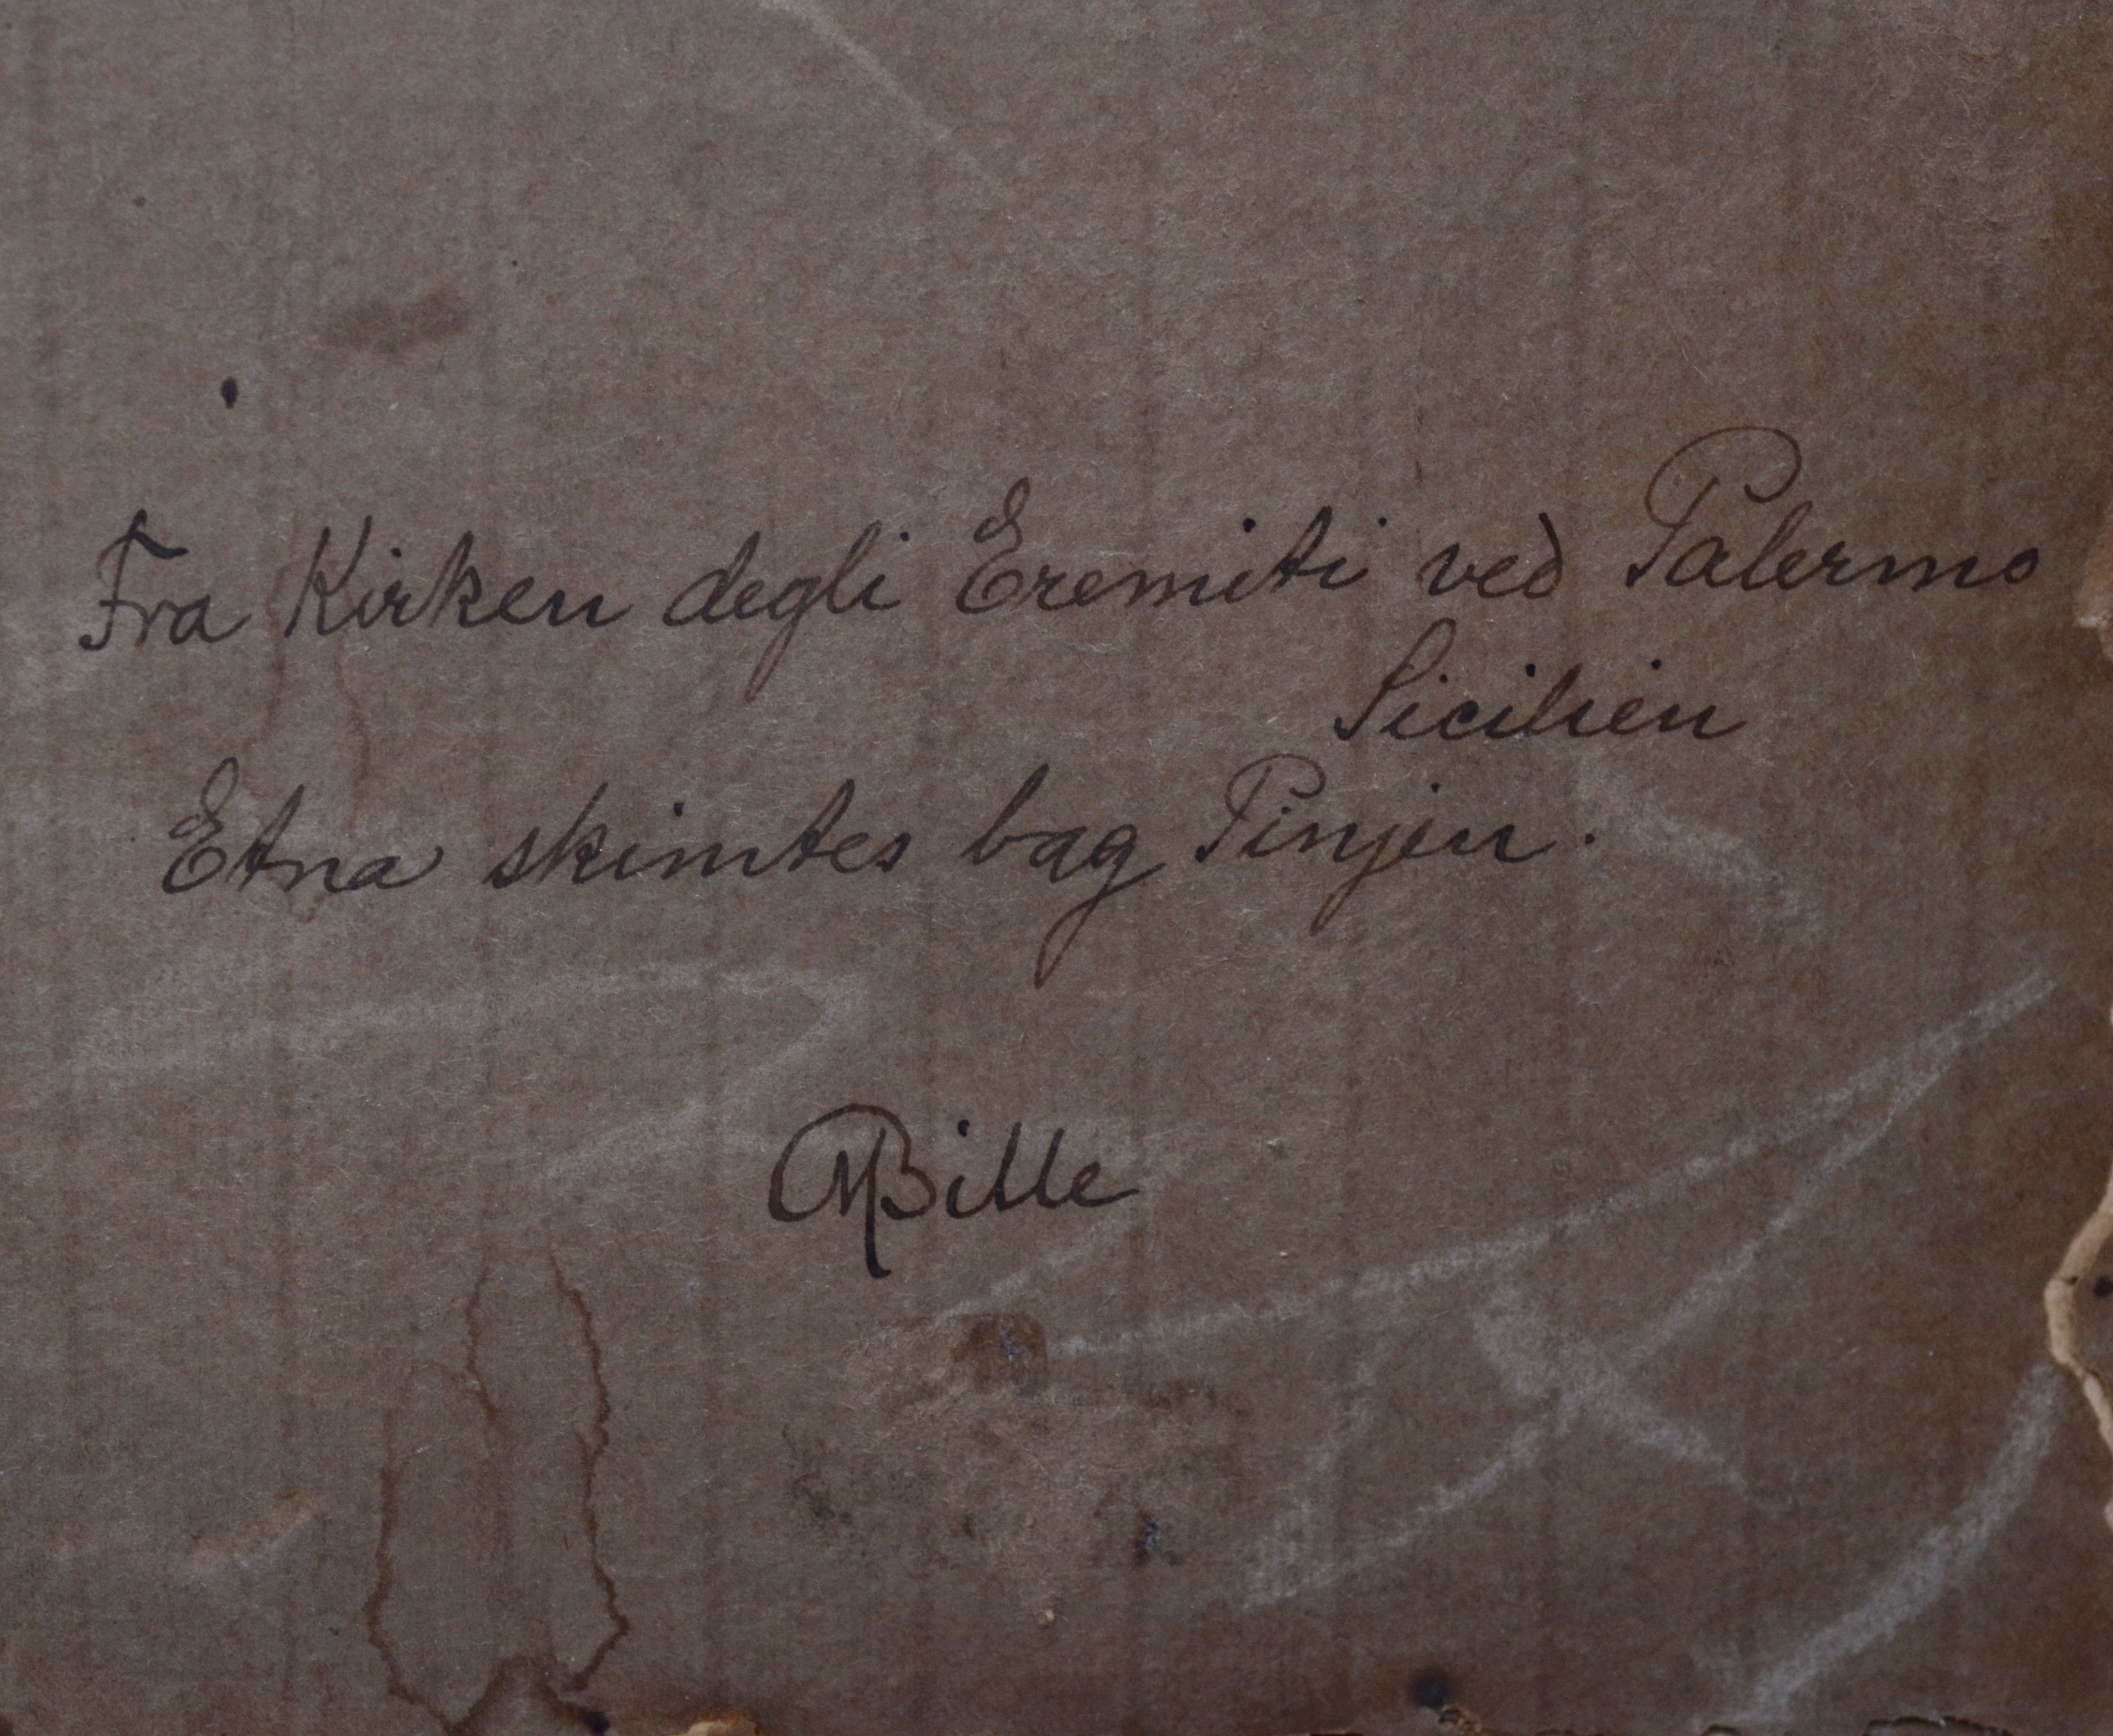 Fra Kirken degli Eremiti ved Palermo
Sicilien
Etna skimtes bag Pinjen.
Bille